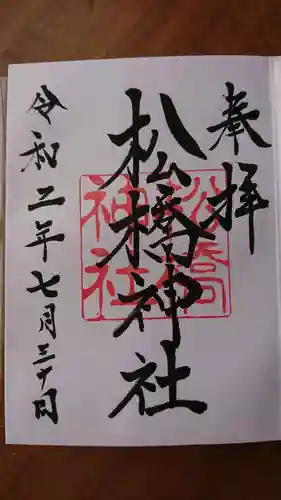 奉拝
松橋神社
松橋
神社
令和二年七月三十日